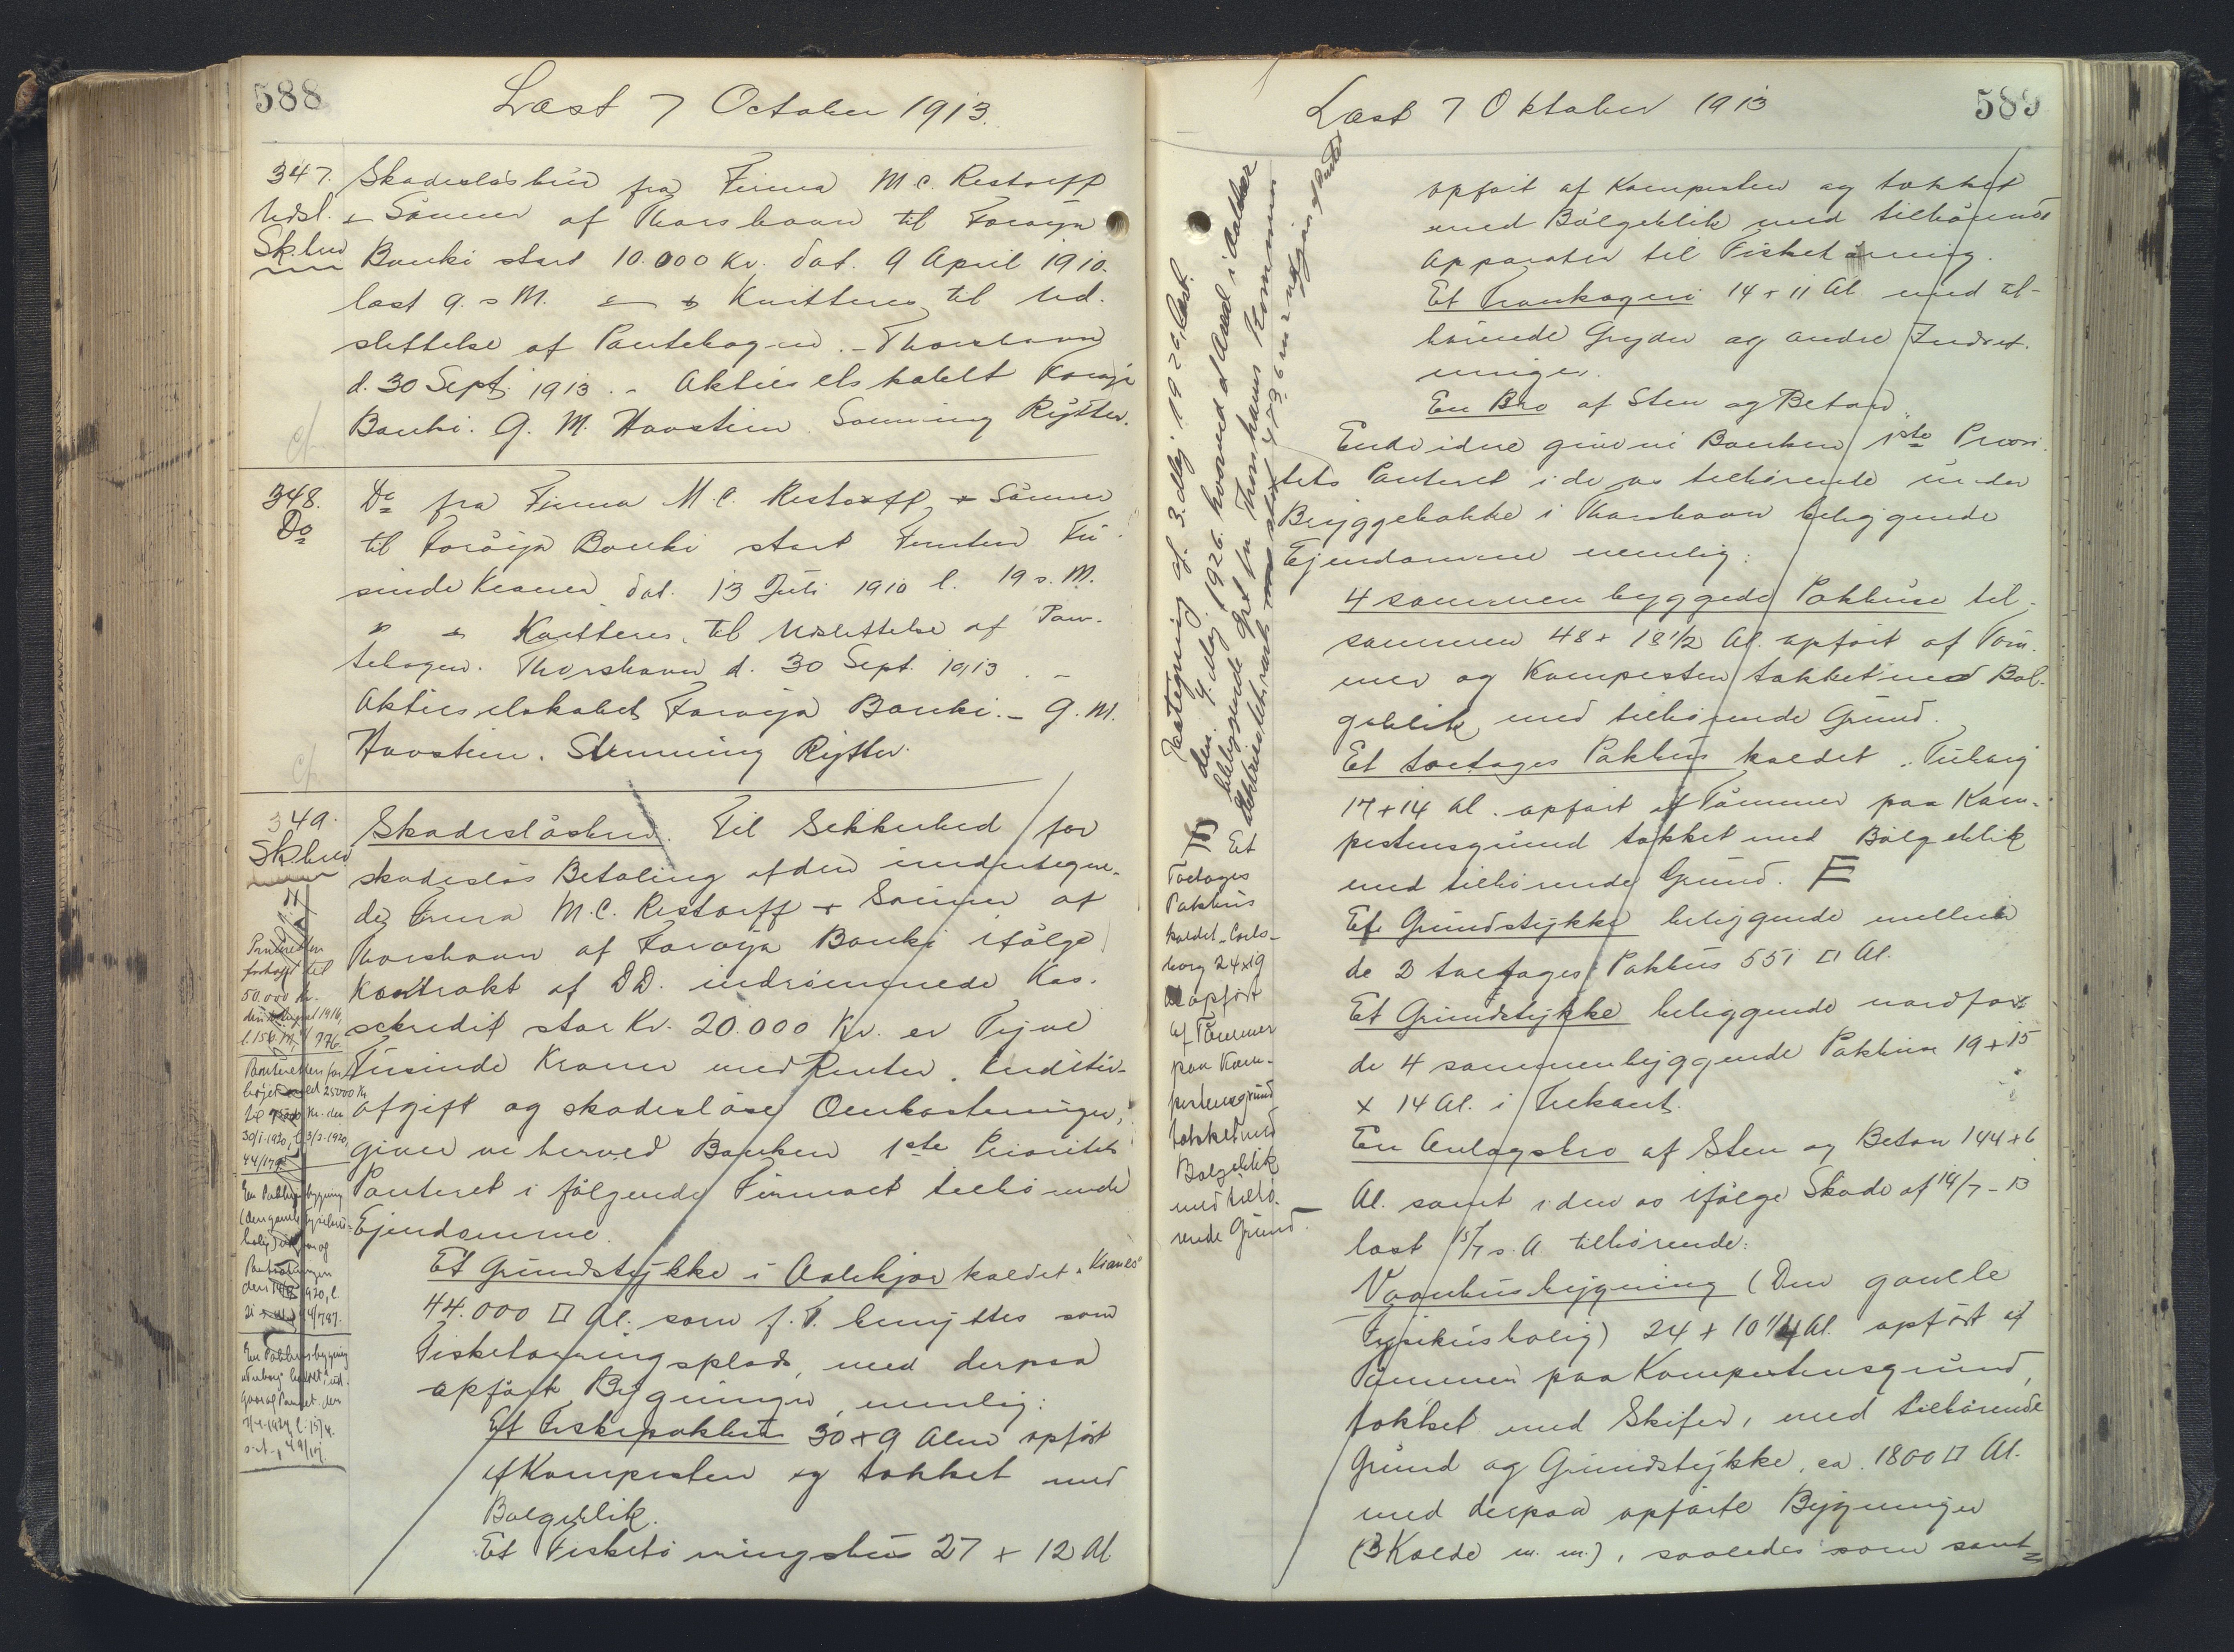 588
Læst 7 October 1913.
347. Skadesløsbrev fra Firma M.C. Restorff
Udsl. & Sønner af Thorshavn til Føroya
Sk.brev Banki stort 10.000 Kr. dat. 9 April 1910.
læst 9. s M. Kvitteres til Ud-
slettelse af Pantebogen. - Thorshavn
d. 30 Sept. 1913. - Aktieselskabet Føroya
Banki. G. M. Hovstein Sonning Rytter.
348. Do fra Firma M.C. Restorff & Sønner
Do til Føroya Banki stort Femten Tu-
sinde Kroner dat. 13 Juli 1910 l. 19 s. M.
Kvitteres til Udslettelse af Pan-
tebogen. Thorshavn d. 30 Sept. 1913. -
Aktieselskabet Føroya Banki. - G. M.
Hovstein. Sonning Rytter.
349. Skadesløsbrev. Til Sikkerhed for
Sk.brev skadesløs Betaling af den undertegne-
de Firma M.C. Restorff & Sønner af
Thorshavn af Føroya Banki ifølge
Kontrakt af D.D. indrømmede Kas-
sekredit stor Kr. 20.000 Kr. er Tyve
Tusinde Kroner med Renter, Kreditiv-
afgift og skadesløse Omkostninger,
giver vi herved Banken 1ste Prioritets
Panteret i følgende Firmaet tilhørende
Ejendomme.
Et Grundstykke i Aalekjær kaldet "Kranes"
44.000 □ Al. som f. T. benyttes som
Fisketørringsplads, med derpaa
opførte Bygninger, nemlig:
Et Fiskepakhus 30 + 9 Alen opført
af Kampesten og tækket med
Bølgeblik.
Et Fisketørringshus 27 + 12 Al
Panteretten
forhøjet til
50.000 Kr.
Panteretten for-
højet med 25000 Kr
til 75000 Kr. den
30/1.1920, l. 3/2.1920,
En Pakhusbygning
Læst 7 Oktober 1913
589
opført af Kampesten og tækket
med Bølgeblik med tilhørende
Apparater til Fisketørring.
Et Trankogeri 14 + 11 Al med til-
hørende Gryder og andre Indret-
ninger.
En Bro af Sten og Beton.
Endvidere giver vi Banken 1ste Priori-
tets Panteret i de os tilhørende under
Bryggebakke i Thorshavn beliggende
Ejendomme nemlig:
4 sammenbyggede Pakhuse til-
sammen 48 + 18 1/2 Al. opført af Tøm-
mer og Kampesten tækket med Bøl-
geblik med tilhørende Grund.
Et toetages Pakhus kaldet "Tuborg
17 + 14 Al. opført af Tømmer paa Kam-
pestensgrund tækket med Bølgeblik
med tilhørende Grund. F
Et Grundstykke beliggende mellem
de 2 toetages Pakhus 551 □ Al.
Et Grundstykke beliggende nord for
de 4 sammenbyggende Pakhuse 19 + 15
x 14 Al. i Trekant.
En Anlagsbro af Sten og Beton 144 + 6
Al. samt i den os ifølge Skøde af 14/7 - 13
læst 15/7 s. A. tilhørende:
Vaanhusbygning (Den gamle
Fysikusbolig) 24 + 10 1/4 Al. opført af
Tømmer paa Kampestensgrund,
tækket med Skifer, med tilhørende
Grund og Grundstykke, ca. 1800 □ Al.
med derpaa opførte Bygninger
(3 Kolde m. m.), saaledes som samt=
F Et
Toetages
Pakhus
kaldet "Carls-
borg 24x19
Al opført
af Tømmer
paa Kam-
pestensgrund
tækket med
Bølgeblik
med tilhø-
rende Grund.